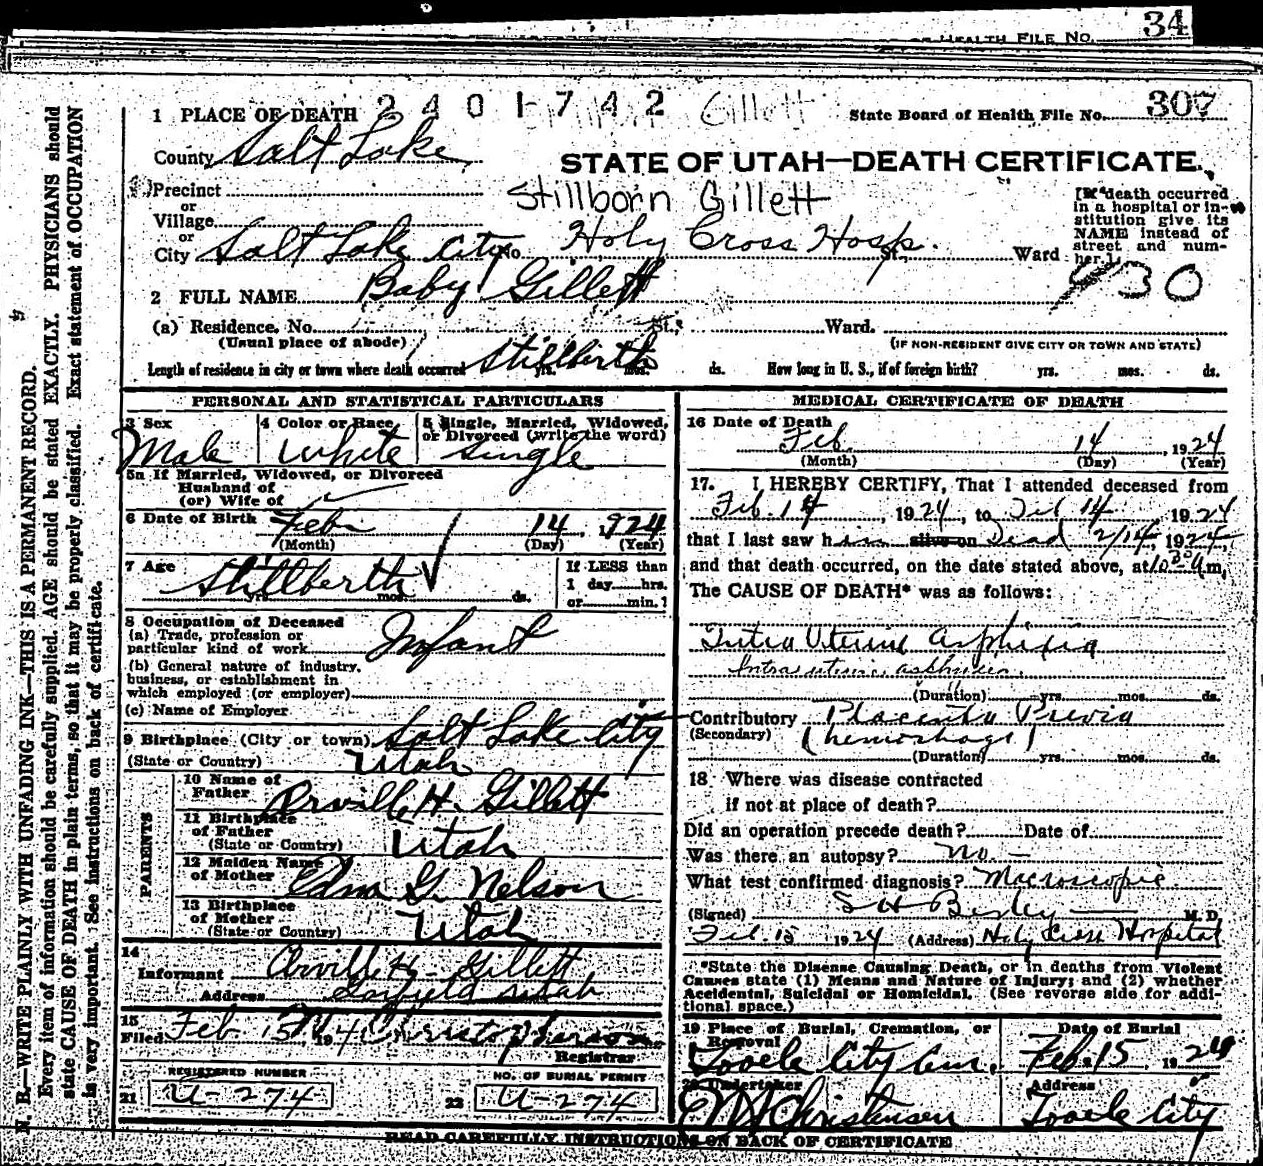 34
HEALTH FILE NO.
2401742 Gillett
State Board of Health File No. 307
1 PLACE OF DEATH
County Salt Lake
STATE OF UTAH—DEATH CERTIFICATE.
Precinct
or
Village
or
Stillborn Gillett
City Salt Lake City No. Holy Cross Hosp. St., Ward
(If death occurred
in a hospital or in-
stitution give its
NAME instead of
street and num-
ber.)
2 FULL NAME Baby Gillett
30
(a) Residence. No. St., Ward.
(Usual place of abode)
(IF NON-RESIDENT GIVE CITY OR TOWN AND STATE)
Length of residence in city or town where death occurred Stillberth yrs. mos. ds. How long in U. S., if of foreign birth? yrs. mos. ds.
PERSONAL AND STATISTICAL PARTICULARS
3 Sex
Male
4 Color or Race
White
5 Single, Married, Widowed,
or Divorced (write the word)
Single
5a If Married, Widowed, or Divorced
Husband of
(or) Wife of
6 Date of Birth Feb 14, 1924
(Month) (Day) (Year)
7 Age Stillberth
yrs. mos. ds.
If LESS than
1 day hrs.
or min.?
8 Occupation of Deceased
(a) Trade, profession or
particular kind of work Infant
(b) General nature of industry,
business, or establishment in
which employed (or employer)
(c) Name of Employer
9 Birthplace (City or town) Salt Lake City
(State or Country) Utah
PARENTS
10 Name of
Father Orville H. Gillett
11 Birthplace
of Father
(State or Country) Utah
12 Maiden Name
of Mother Edna G. Nelson
13 Birthplace
of Mother
(State or Country) Utah
14
Informant Orville H. Gillett
Address Garfield Utah
15
Filed Feb 15 1924 Christopherson
Registrar
REGISTERED NUMBER
21 U-274
NO. OF BURIAL PERMIT
22 U-274
MEDICAL CERTIFICATE OF DEATH
16 Date of Death
Feb. 14, 1924
(Month) (Day) (Year)
17. I HEREBY CERTIFY, That I attended deceased from
Feb. 14, 1924, to Feb 14 1924
that I last saw him alive on Dead 2/14, 1924,
and that death occurred, on the date stated above, at 10:30 a m,
The CAUSE OF DEATH* was as follows:
Intra Uterine Asphixia
Intra uterine asphyxia
(Duration) yrs. mos. ds.
Contributory Placenta Previa
(Secondary) (hemorrhage)
(Duration) yrs. mos. ds.
18 Where was disease contracted
if not at place of death?
Did an operation precede death? Date of
Was there an autopsy? No.
What test confirmed diagnosis? Macroscopic
(Signed) S H Besley M. D.
Feb. 15 1924 (Address) Holy Cross Hospital
*State the Disease Causing Death, or in deaths from Violent
Causes state (1) Means and Nature of Injury; and (2) whether
Accidental, Suicidal or Homicidal. (See reverse side for addi-
tional space.)
19 Place of Burial, Cremation, or
Removal
Tooele City Cem.
Date of Burial
Feb. 15 1924
20 Undertaker
Christensen
Address
Tooele City
READ CAREFULLY INSTRUCTIONS ON BACK OF CERTIFICATE
N. B.—WRITE PLAINLY WITH UNFADING INK—THIS IS A PERMANENT RECORD.
Every item of information should be carefully supplied. AGE should be stated EXACTLY. PHYSICIANS should
state CAUSE OF DEATH in plain terms, so that it may be properly classified. Exact statement of OCCUPATION
is very important. See instructions on back of certificate.